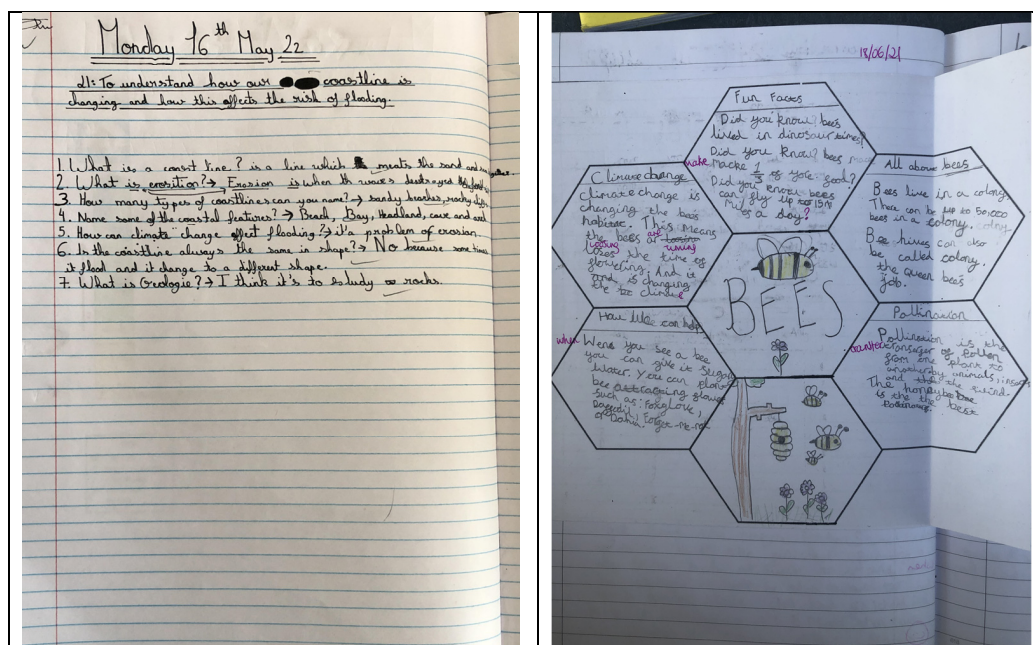 Monday 16th May 22
LI: To understand how our coastline is
changing and how this affects the risk of flooding.
1. What is a coast line? is a line which meats the sand and
2. What is erosition? → Erosion is when the waves destroyes the
3. How many types of coastlines can you name? → sandy beaches, rocky cliffs,
4. Name some of the coastal features? → Beach, Bay, Headland, cave and
5. How can climate change affect flooding? → it's a problem of erosion.
6. Is the coastline always the same in shape? → No because some times
it flood and it change to a different shape.
7. What is Geologie? → I think it's to study rocks.
18/06/21
Fun Facts
Did you know? bees
lived in dinosaur times?
Did you know? bees
make
macke 1/3 of youre food?
Did you know bees
can fly up to 15
miles a day?
Climate change
Climate change is
changing the bees
habitat. This means
the bees
loosing
timing
loses the time of
flowering. And it
is changing
the climate
All about bees
Bees live in a colony
There can be up to 50,000
bees in a colony.
Bee hives can also
be called colony.
the Queen bee's
job.
BEES
How We can help
when
Wens you see a bee
you can give it sugar
Water. You can plant
bee attracting flowers
such as: Foxglove,
Daffodil, Forget-me-not
or Dahlia.
Pollination
Pollination is the
transfer of pollen
from one plant to
another by animals, insects
and the wind.
The honeybee
is the the best